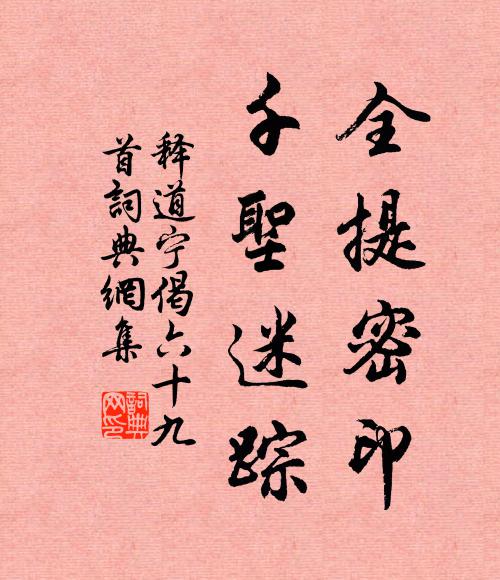 全提密印
千聖迷踪
释道宁偈六十九
首詞典網集
詞典
网印